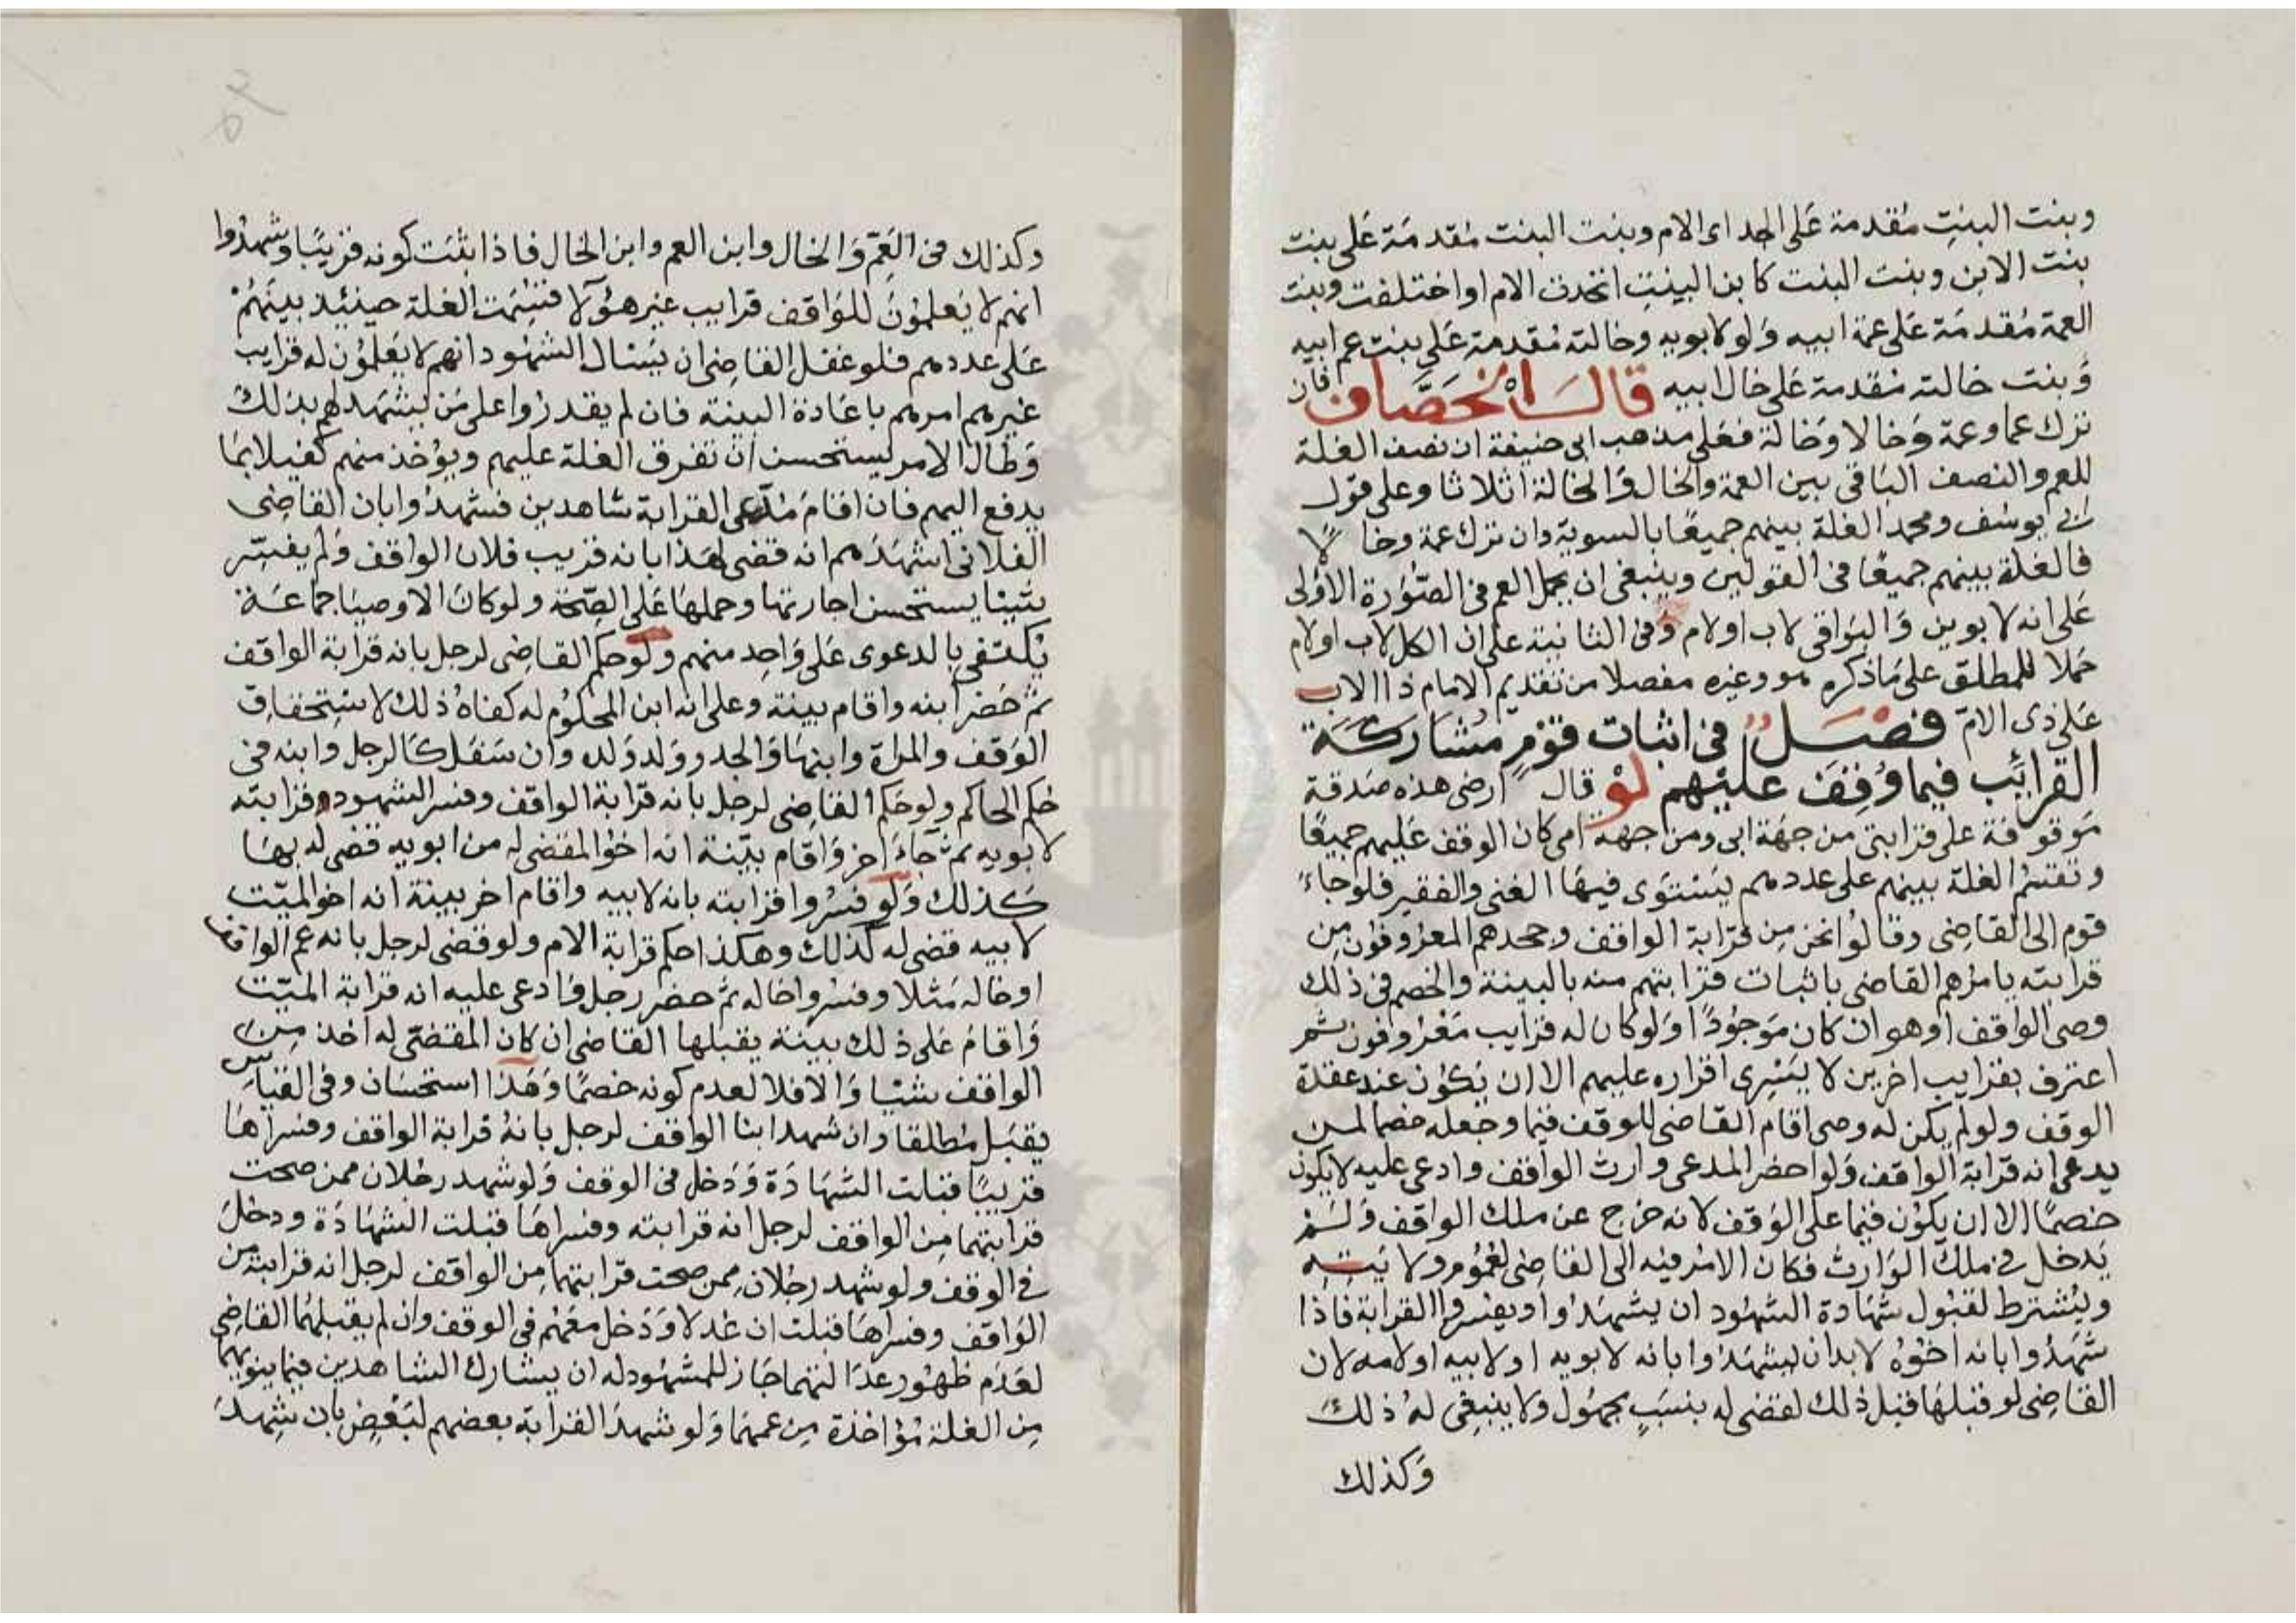 وبنت البنت مقدمة على الجد اى الام وبنت البنت مقدمة على بنت
بنت الابن وبنت البنت كابن البنت اتحدت الام او اختلفت وبنت
العمة مقدمة على عمة ابيه ولو لابويه وخالته مقدمة على بنت عم ابيه
وبنت خالته مقدمة على خال ابيه قال الخصاف فان
ترك عما وعمة وخالا وخالة فعلى مذهب ابى حنيفة ان نصف الغلة
للعم والنصف الباقى بين العمة والخال والخالة اثلاثا وعلى قول
ابى يوسف ومحمد الغلة بينهم جميعا بالسوية وان ترك عمة وخالا
فالغلة بينهم جميعا فى القولين وينبغى ان يحمل العم فى الصورة الاولى
على انه لابوين والبواقى لاب او لام وفى الثانية على ان الكل لاب او لام
حملا للمطلق على ماذكره هو وغيره مفصلا من تقديم الامام ذا الاب
على ذى الام فصل فى اثبات قوم مشاركة
القرائب فيما وقف عليهم لو قال ارضى هذه صدقة
موقوفة على قرابتى من جهة ابى ومن جهة امى كان الوقف عليهم جميعا
وتقسم الغلة بينهم على عددهم يستوى فيها الغنى والفقير فلو جاء
قوم الى القاضى وقالوا نحن من قرابة الواقف وجحدهم المعروفون من
قرابته يامرهم القاضى باثبات قرابتهم منه بالبينة والخصم فى ذلك
وصى الواقف او هو ان كان موجودا ولو كان له قرايب معروفون ثم
اعترف بقرايب اخرين لا يسرى اقراره عليهم الا ان يكون عند عقدة
الوقف ولو لم يكن له وصى اقام القاضى للوقف قيما وجعله خصما لمن
يدعى انه قرابة الواقف ولو احضر المدعى وارث الواقف وادعى عليه لا يكون
خصما الا ان يكون قيما على الوقف لانه خرج عن ملك الواقف ولم
يدخل فى ملك الوارث فكان الامر فيه الى القاضى لعموم ولايته
ويشترط لقبول شهادة الشهود ان يشهدوا ويفسروا القرابة فاذا
شهدوا بانه اخوه لابد ان ليشهدوا بانه لابويه او لابيه او لامه لان
القاضى لو قبلها قبل ذلك لقضى له بنسب مجهول ولا ينبغى له ذلك
وكذلك
وكذلك فى العم والخال وابن العم وابن الخال فاذا اثبت كونه قريبا وشهدوا
انهم لا يعلمون للواقف قرايب غير هؤلا قسمت الغلة حينئذ بينهم
على عددهم فلو غفل القاضى ان يسال الشهود انهم لا يعلمون له قرايب
غيرهم امرهم باعادة البينة فان لم يقدروا على من ليشهد لهم بذلك
وطال الامر ليستحسن ان تفرق الغلة عليهم ويؤخذ منهم كفيلا بما
يدفع اليهم فان اقام مدعى القرابة شاهدين فشهدوا بان القاضى
الفلانى اشهدهم انه قضى لهذا بانه قريب فلان الواقف ولم يفسر
شيئا يستحسن اجازتها وحملها على الصحة ولو كان الاوصيا جماعة
يكتفى بالدعوى على واحد منهم ولو حكم القاضى لرجل بانه قرابة الواقف
ثم حضر ابنه واقام بينة وعلى انه ابن المحكوم له كفاه ذلك لاستحقاق
الوقف والمراة وابنها والجد وولد ولده وان سفل كالرجل وابنه فى
حكم الحاكم ولو حكم القاضى لرجل بانه قرابة الواقف وفسر الشهود قرابته
لابويه ثم جاء اخر واقام بينة انه اخو المقضى له من ابويه قضى له بها
كذلك ولو فسروا قرابته بانه لابيه واقام اخر بينة انه اخو الميت
لابيه قضى له كذلك وهكذا حكم قرابة الام ولو قضى لرجل بانه عم الواقف
او خاله مثلا وفسروا خاله ثم حضر رجل وادعى عليه انه قرابة الميت
واقام على ذلك بينة يقبلها القاضى ان كان المقضى له اخذ من
الواقف شيئا والا فلا لعدم كونه خصما وهذا استحسان وفى القياس
يقبل مطلقا وان شهد ابنا الواقف لرجل بانه قرابة الواقف وفسراها
قريبا قبلت الشهادة ودخل فى الوقف ولو شهد رجلان ممن صحت
قرابتهما من الواقف لرجل انه قرابته وفسراها قبلت الشهادة ودخل
فى الوقف ولو شهد رجلان ممن صحت قرابتهما من الواقف لرجل انه قرابته من
الواقف وفسراها قبلت ان عدلا ودخل معهم فى الوقف وان لم يقبلهما القاضى
لعدم ظهور عدالتهما جاز للمشهود له ان يشارك الشاهدين فيما ينوبهما
من الغلة مؤاخذة من عمهما ولو شهد القرابة بعضهم لبعض بان شهد